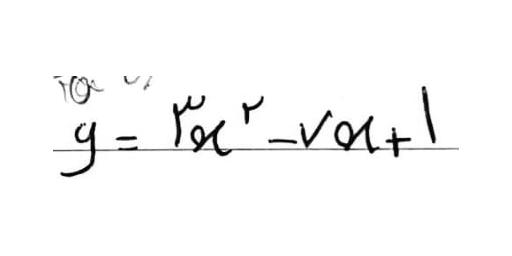 y = ۳x² - ۷x + ۱